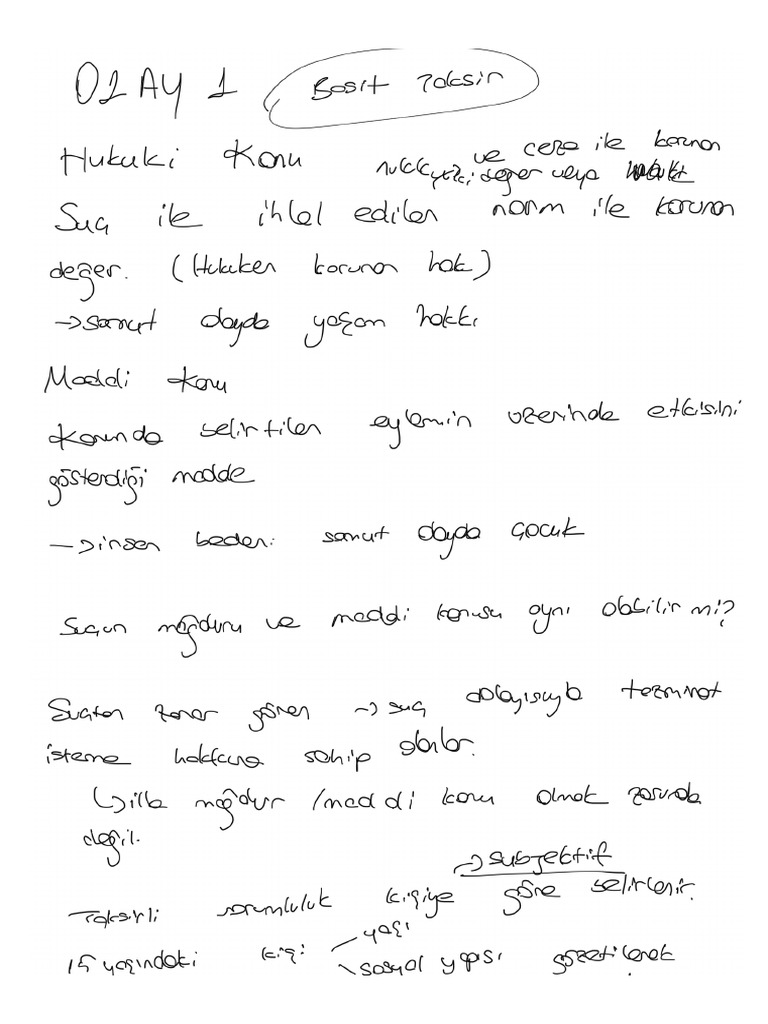 OLAY 1 Basit Taksir
Hukuki Konu ve ceza ile korunan
hukuki değer veya
Suç ile ihlal edilen norm ile korunan
değer. (Hukuken korunan hak)
→ somut olayda yaşam hakkı
Maddi Konu
Kanunda belirtilen eylemin üzerinde etkisini
gösterdiği madde
→ insan bedeni somut olayda çocuk
Suçun mağduru ve maddi konusu aynı olabilir mi?
Suçtan zarar gören → suç dolayısıyla tazminat
isteme hakkına sahip olanlar.
↳ illa mağdur / maddi konu olmak zorunda
değil.
→ subjektif
Taksirli sorumluluk kişiye göre belirlenir.
15 yaşındaki kişi yaşı
sosyal yapısı gözetilerek